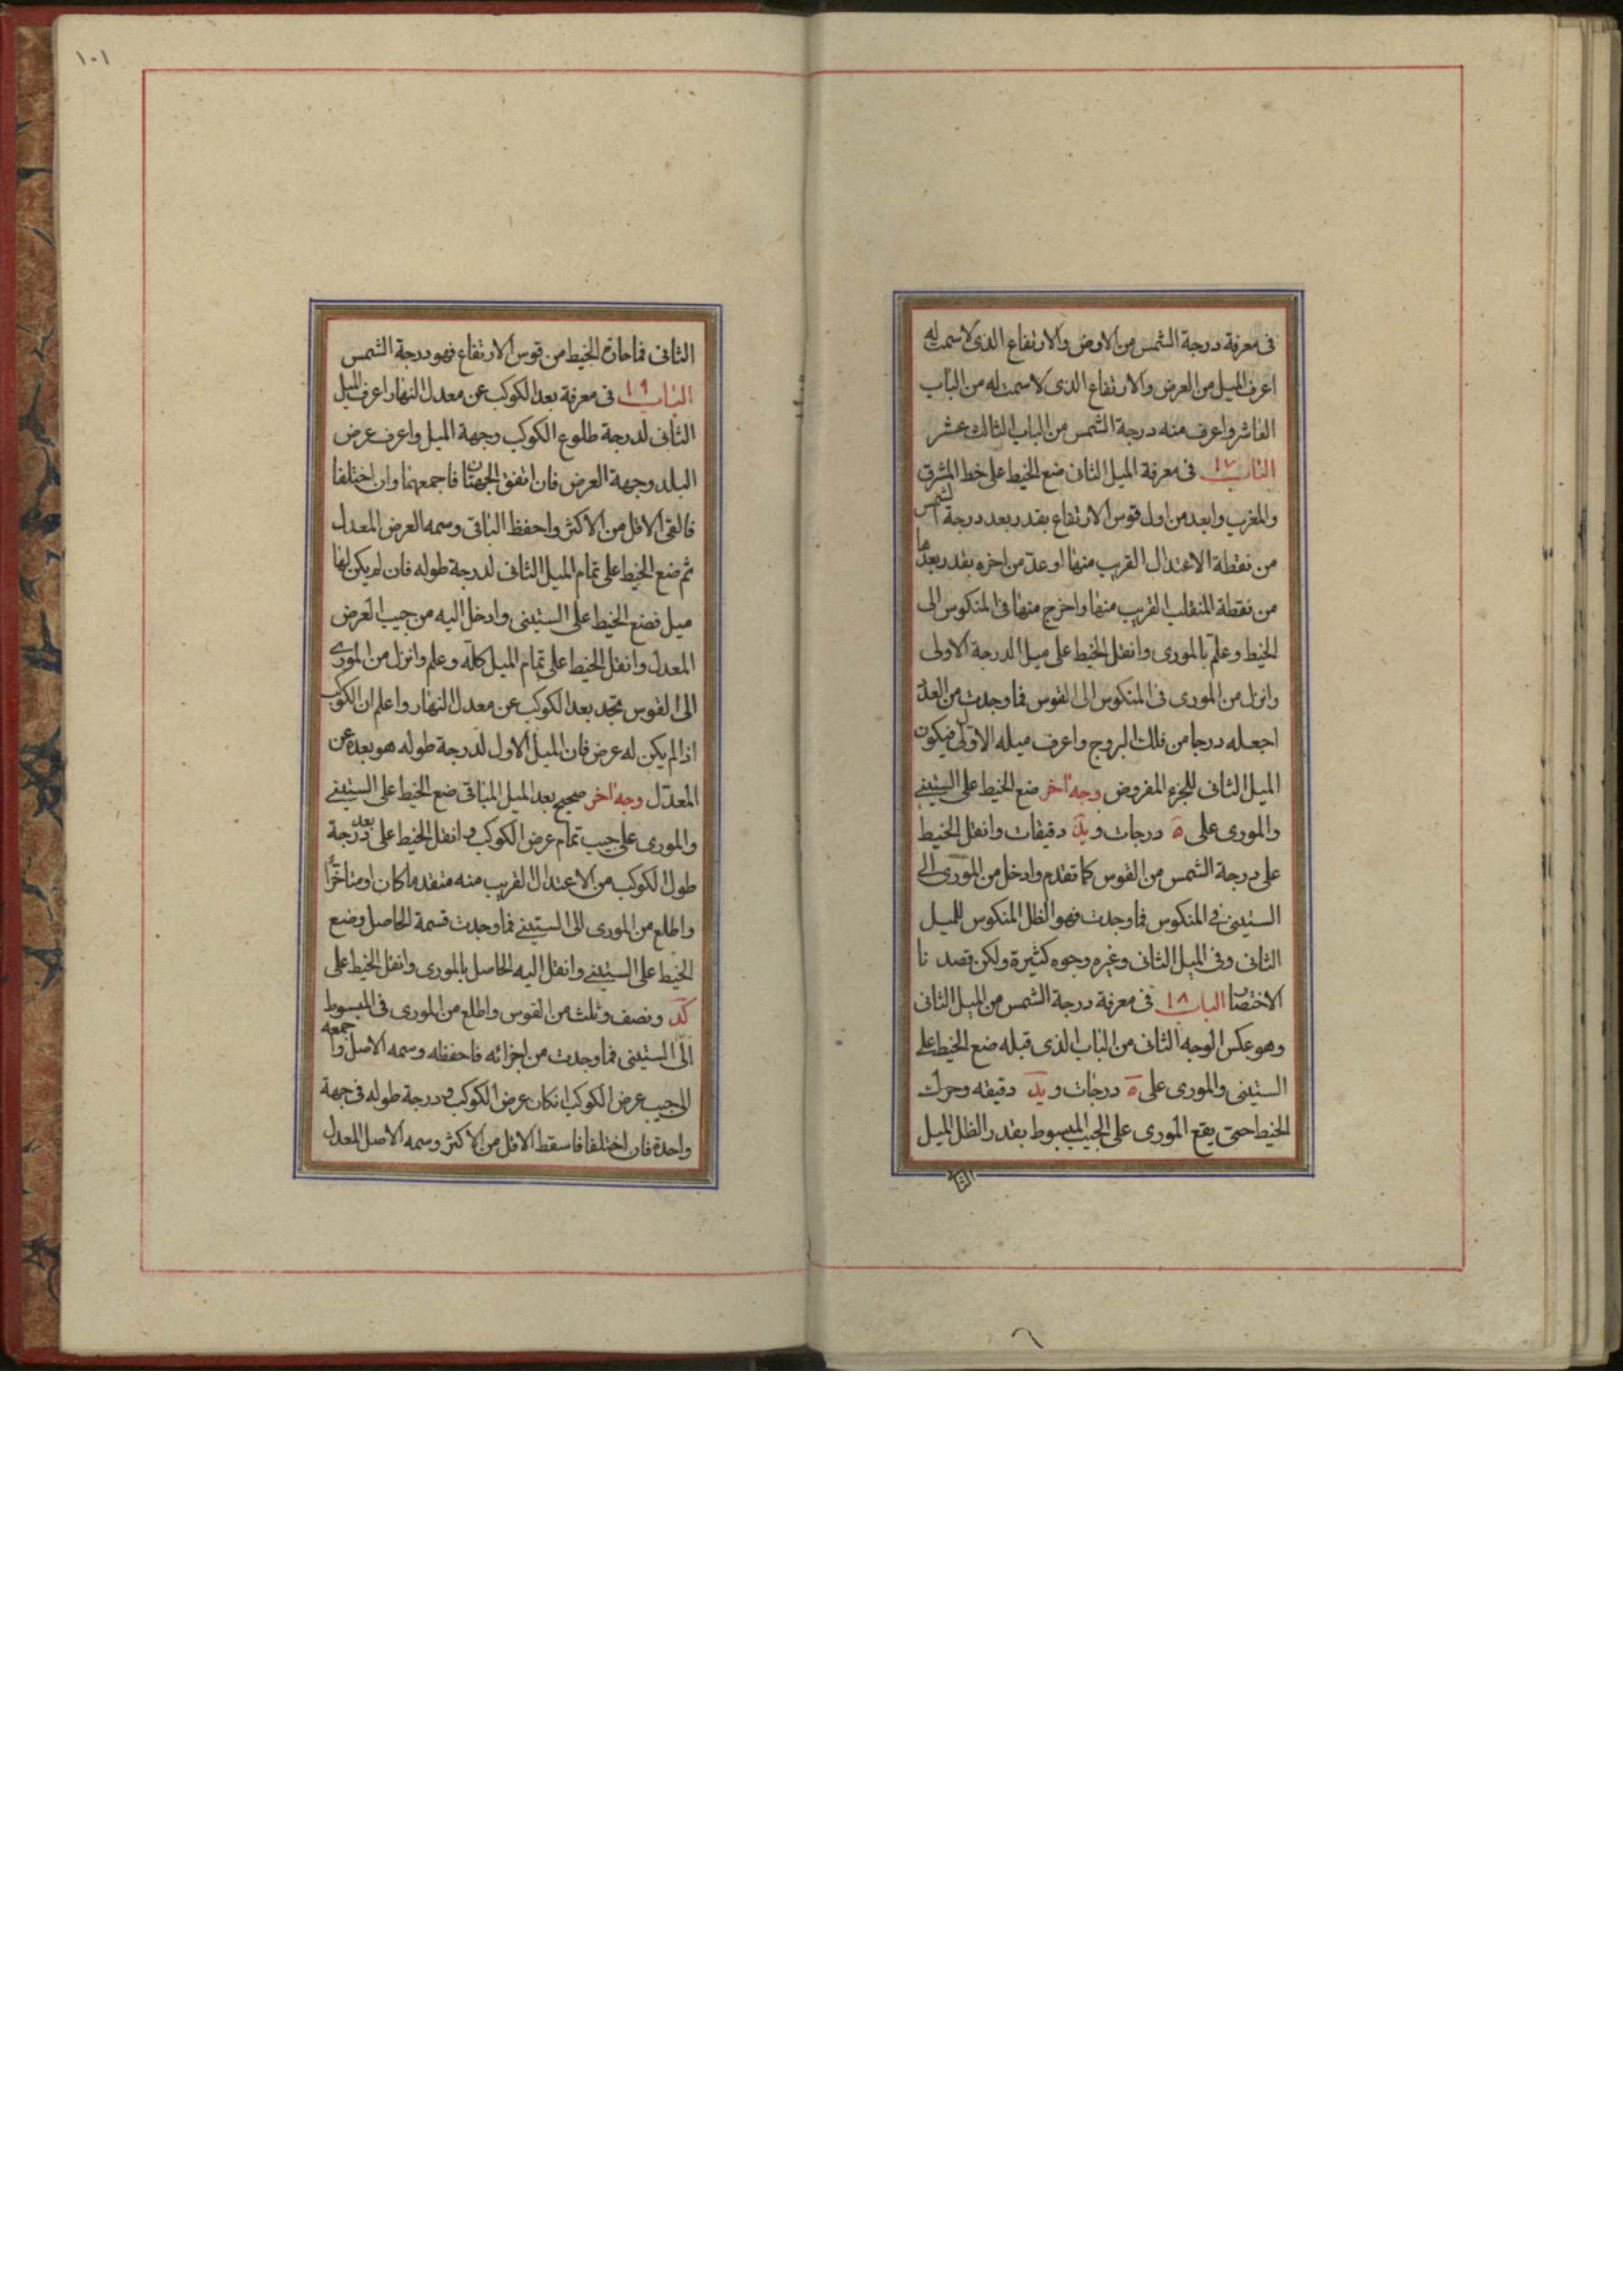 فى معرفة درجة الشمس من الارض والارتفاع الذى لا سمت له
اعرف الميل من العرض والارتفاع الذى لا سمت له من الباب
العاشر واعرف منه درجة الشمس من الباب الثالث عشر
الباب ١٧ فى معرفة الميل الثانى ضع الخيط على خط المشرق
والمغرب وابعد من اول قوس الارتفاع بقدر بعد درجة الشمس
من نقطة الاعتدال القريب منها او عد من اخره بقدر بعدها
من نقطة المنقلب القريب منها واخرج منها فى المنكوس الى
الخيط وعلم بالمورى وانقل الخيط على ميل الدرجة الاولى
وانزل من المورى فى المنكوس الى القوس فما وجدت من العدد
اجعله درجا من فلك البروج واعرف ميله الاول فيكون
الميل الثانى للجزء المفروض وجه اخر ضع الخيط على الستينى
والمورى على ه درجات و يد دقيقات وانقل الخيط
على درجة الشمس من القوس كما تقدم وادخل من المورى الى
الستينى فى المنكوس فما وجدت فهو الظل المنكوس للميل
الثانى وفى الميل الثانى وغيره وجوه كثيرة ولكن قصدنا
الاختصار الباب ١٨ فى معرفة درجة الشمس من الميل الثانى
وهو عكس الوجه الثانى من الباب الذى قبله ضع الخيط على
الستينى والمورى على ه درجات و يد دقيقه وحرك
الخيط حتى يقع المورى على الجيب المبسوط بقدر الظل الميل
الثا
١٠١
الثانى فما حازه الخيط من قوس الارتفاع فهو درجة الشمس
الباب ١٩ فى معرفة بعد الكوكب عن معدل النهار اعرف الميل
الثانى لدرجة طلوع الكوكب وجهة الميل واعرف عرض
البلد وجهة العرض فان اتفق الجهتان فاجمعهما وان اختلفا
فالقى الاقل من الاكثر واحفظ الباقى وسمه العرض المعدل
ثم ضع الخيط على تمام الميل الثانى لدرجة طوله فان لم يكن لها
ميل فضع الخيط على الستينى وادخل اليه من جيب العرض
المعدل وانقل الخيط على تمام الميل كله وعلم وانزل من المورى
الى القوس تجد بعد الكوكب عن معدل النهار واعلم ان الكوكب
اذا لم يكن له عرض فان الميل الاول لدرجة طوله هو بعده عن
المعدل وجه اخر صحيح بعد الميل الباقى ضع الخيط على الستينى
والمورى على جيب تمام عرض الكوكب وانقل الخيط على بعد درجة
طول الكوكب من الاعتدال القريب منه متقدما كان او متاخرا
واطلع من المورى الى الستينى فما وجدت قسمة الحاصل وضع
الخيط على الستينى وانقل اليه الحاصل بالمورى وانقل الخيط على
كد ونصف وثلث من القوس واطلع من المورى فى المبسوط
الى الستينى فما وجدت من اجزائه فاحفظه وسمه الاصل واجمعه
الى جيب عرض الكوكب ان كان عرض الكوكب ودرجة طوله فى جهة
واحدة فان اختلفا فاسقط الاقل من الاكثر وسمه الاصل المعدل